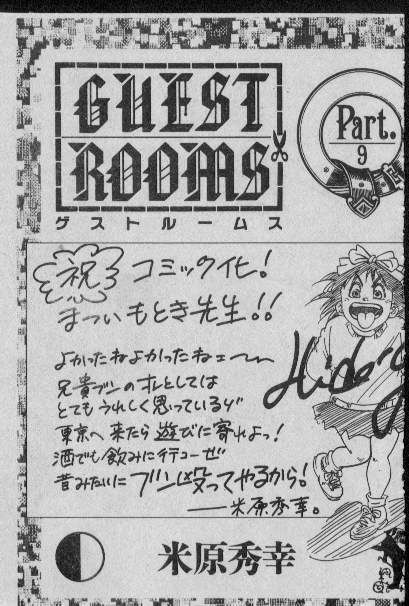 GUEST
ROOMS
Part.
9
ゲストルームス
祝 コミック化!
まついもとき先生!!
よかったねよかったねェ〜〜
兄貴ブンのオレとしては
とてもうれしく思っているゾ
東京へ来たら遊びに寄れよっ!
酒でも飲みに行こーぜ
昔みたいにブン殴ってやるから!
——米原秀幸。
Hide
米原秀幸